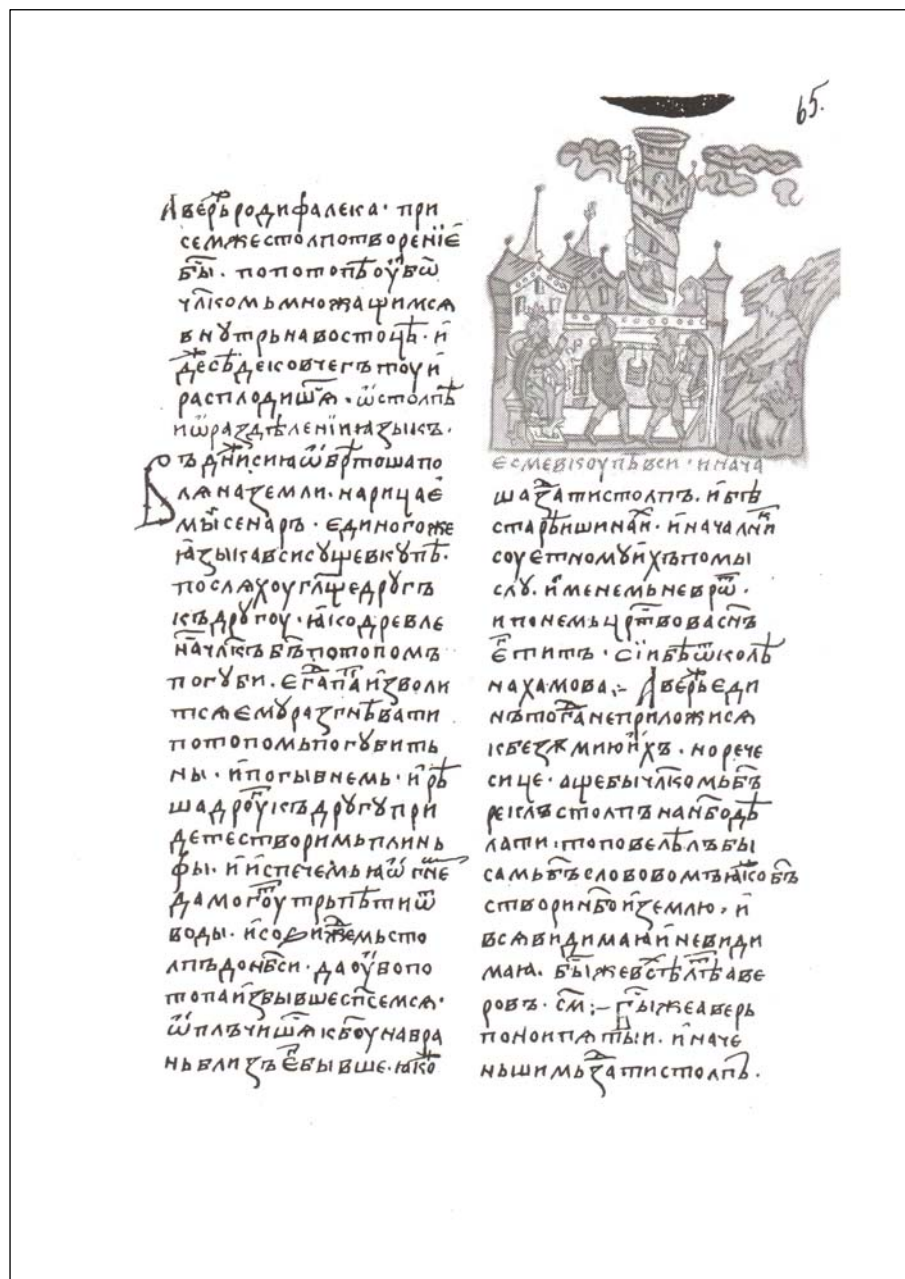 65.
Аверъ роди фалека · при
семже столпотворенїе
бы̑ · по потопѣ оубѡ
чл҃комъ множащимся
внутрь на востоцѣ · и
идеже ковчегъ тоу и
расплодишꙗ · ѿ столпѣ
и ѿ раздѣленїи ꙗзыкъ ·
въ дн҃и сиꙗ ѡбрѣтоша по
ля на земли · нарицае
мыи сенаръ · единого же
ꙗзыка вси суще вкупѣ ·
послѧхоу гл҃ще другъ
къ другоу · ꙗко древле
на чл҃къ бг҃ъ потопомъ
погуби · егда паки изволи
тися ему разгнѣвати
потопомь погубить
ны · и погывнемь · и рѣ
ша дроугъ къ другу при
дете створимь плинь
фы · и испечемь ꙗ ѡгне
да могоуть трьпѣти ѿ
воды · и созижемь сто
лпъ до нб҃си · да оубо по
топа избывше сп҃семся ·
ѡплъчишꙗ к бг҃оу на бра
нь близъ е҃ бывше · ꙗко
есме вкоупѣ вси · и нача
ша здати столпъ · и бѣ
старѣишина и҃ · и началник
соуетномуихъ помы
слу · именемь неврѡ ·
и по немь црт҃вова сн҃ъ
е҃ титъ · сїи бѣ ѿ колѣ
на хамова :~ Аверъ еди
нъ тогда не приложися
к безꙋмию ихъ · но рече
сице · аще бы чл҃комь бг҃ъ
реклъ столпъ на нб҃о дѣ
лати : то повелѣлъ бы
самь бг҃ъ словоvомъ ꙗкоже
створи нб҃о и землю · и
вся видимаꙗ и невиди
маꙗ · бы҃ же всѣ лѣ аве
ровъ · см҃ :~ бы҃ же аверь
по нои пѧтыи · и наче
ньшимь здати столпъ ·